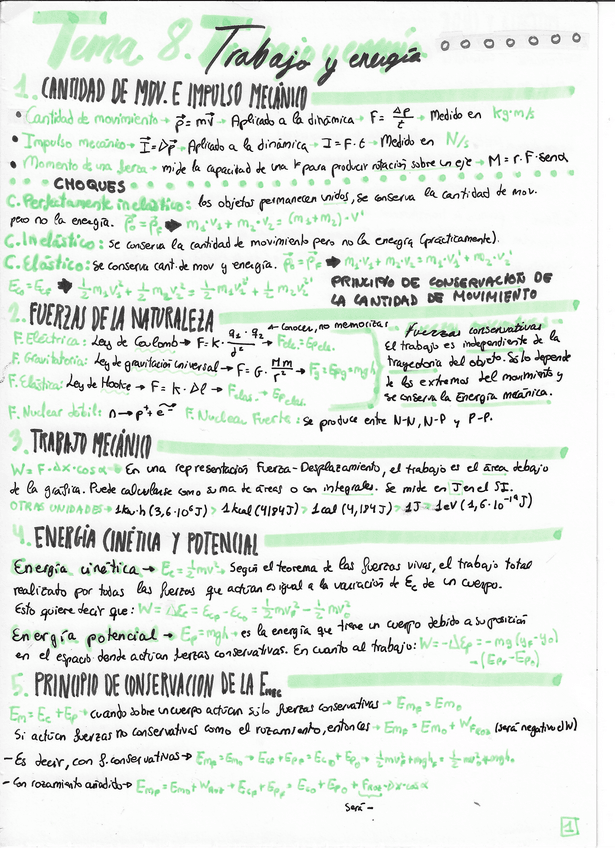 Tema 8. Trabajo y energía
1. CANTIDAD DE MOV. E IMPULSO MECÁNICO
• Cantidad de movimiento → p⃗ = mv⃗ → Aplicado a la dinámica → F = Δp/t → Medido en kg·m/s
• Impulso mecánico → I⃗ = Δp⃗ → Aplicado a la dinámica → I = F·t → Medido en N/s
• Momento de una fuerza → mide la capacidad de una F para producir rotación sobre un eje → M = r·F·senα
CHOQUES
C. Perfectamente inelástico: los objetos permanecen unidos, se conserva la cantidad de mov.
pero no la energía. p⃗₀ = p⃗F ➡ m₁·v₁ + m₂·v₂ = (m₁+m₂)·v'
C. Inelástico: se conserva la cantidad de movimiento pero no la energía (prácticamente).
C. Elástico: se conserva cant. de mov y energía. p⃗₀ = p⃗F ➡ m₁·v₁ + m₂·v₂ = m₁·v₁' + m₂·v₂'
Ec₀ = EcF ➡ ½m₁v₁² + ½m₂v₂² = ½m₁v₁'² + ½m₂v₂'²
PRINCIPIO DE CONSERVACIÓN DE
LA CANTIDAD DE MOVIMIENTO
2. FUERZAS DE LA NATURALEZA
← conocer, no memorizar
F. Eléctrica: Ley de Coulomb → F = K· q₁·q₂/d² → Fele. = Epele.
F. Gravitatoria: Ley de gravitación universal → F = G· Mm/r² → Fg = Epg = mgh
F. Elástica: Ley de Hooke → F = K·Δl → Felas. → Epelas.
F. Nuclear débil: n → p⁺ + e⁻ F. Nuclear Fuerte: se produce entre N-N, N-P y P-P.
Fuerzas conservativas
El trabajo es independiente de la
trayectoria del objeto. Sólo depende
de los extremos del movimiento y
se conserva la Energía mecánica.
3. TRABAJO MECÁNICO
W = F·Δx·cosα → En una representación Fuerza-Desplazamiento, el trabajo es el área debajo
de la gráfica. Puede calcularse como suma de áreas o con integrales. Se mide en J en el SI.
OTRAS UNIDADES → 1kw·h (3,6·10⁶J) > 1kcal (4184J) > 1cal (4,184J) > 1J > 1eV (1,6·10⁻¹⁹J)
4. ENERGÍA CINÉTICA Y POTENCIAL
Energía cinética → Ec = ½mv² → Según el teorema de las fuerzas vivas, el trabajo total
realizado por todas las fuerzas que actúan es igual a la variación de Ec de un cuerpo.
Esto quiere decir que: W = ΔEc = EcF - Ec₀ = ½mvF² - ½mv₀²
Energía potencial → Ep = mgh → es la energía que tiene un cuerpo debido a su posición
en el espacio donde actúan fuerzas conservativas. En cuanto al trabajo: W = -ΔEp = -mg(yF-y₀)
→ (EpF-Ep₀)
5. PRINCIPIO DE CONSERVACIÓN DE LA Emec
Em = Ec + Ep → cuando sobre un cuerpo actúan sólo fuerzas conservativas → EmF = Em₀
Si actúan fuerzas no conservativas como el rozamiento, entonces → EmF = Em₀ + WFROZ (será negativo el W)
- Es decir, con f. conservativas → EmF = Em₀ → EcF + EpF = Ec₀ + Ep₀ → ½mvF² + mghF = ½mv₀² + mgh₀
- Con rozamiento añadido → EmF = Em₀ + WROZ → EcF + EpF = Ec₀ + Ep₀ + FROZ·Δx·cosα
será -
1